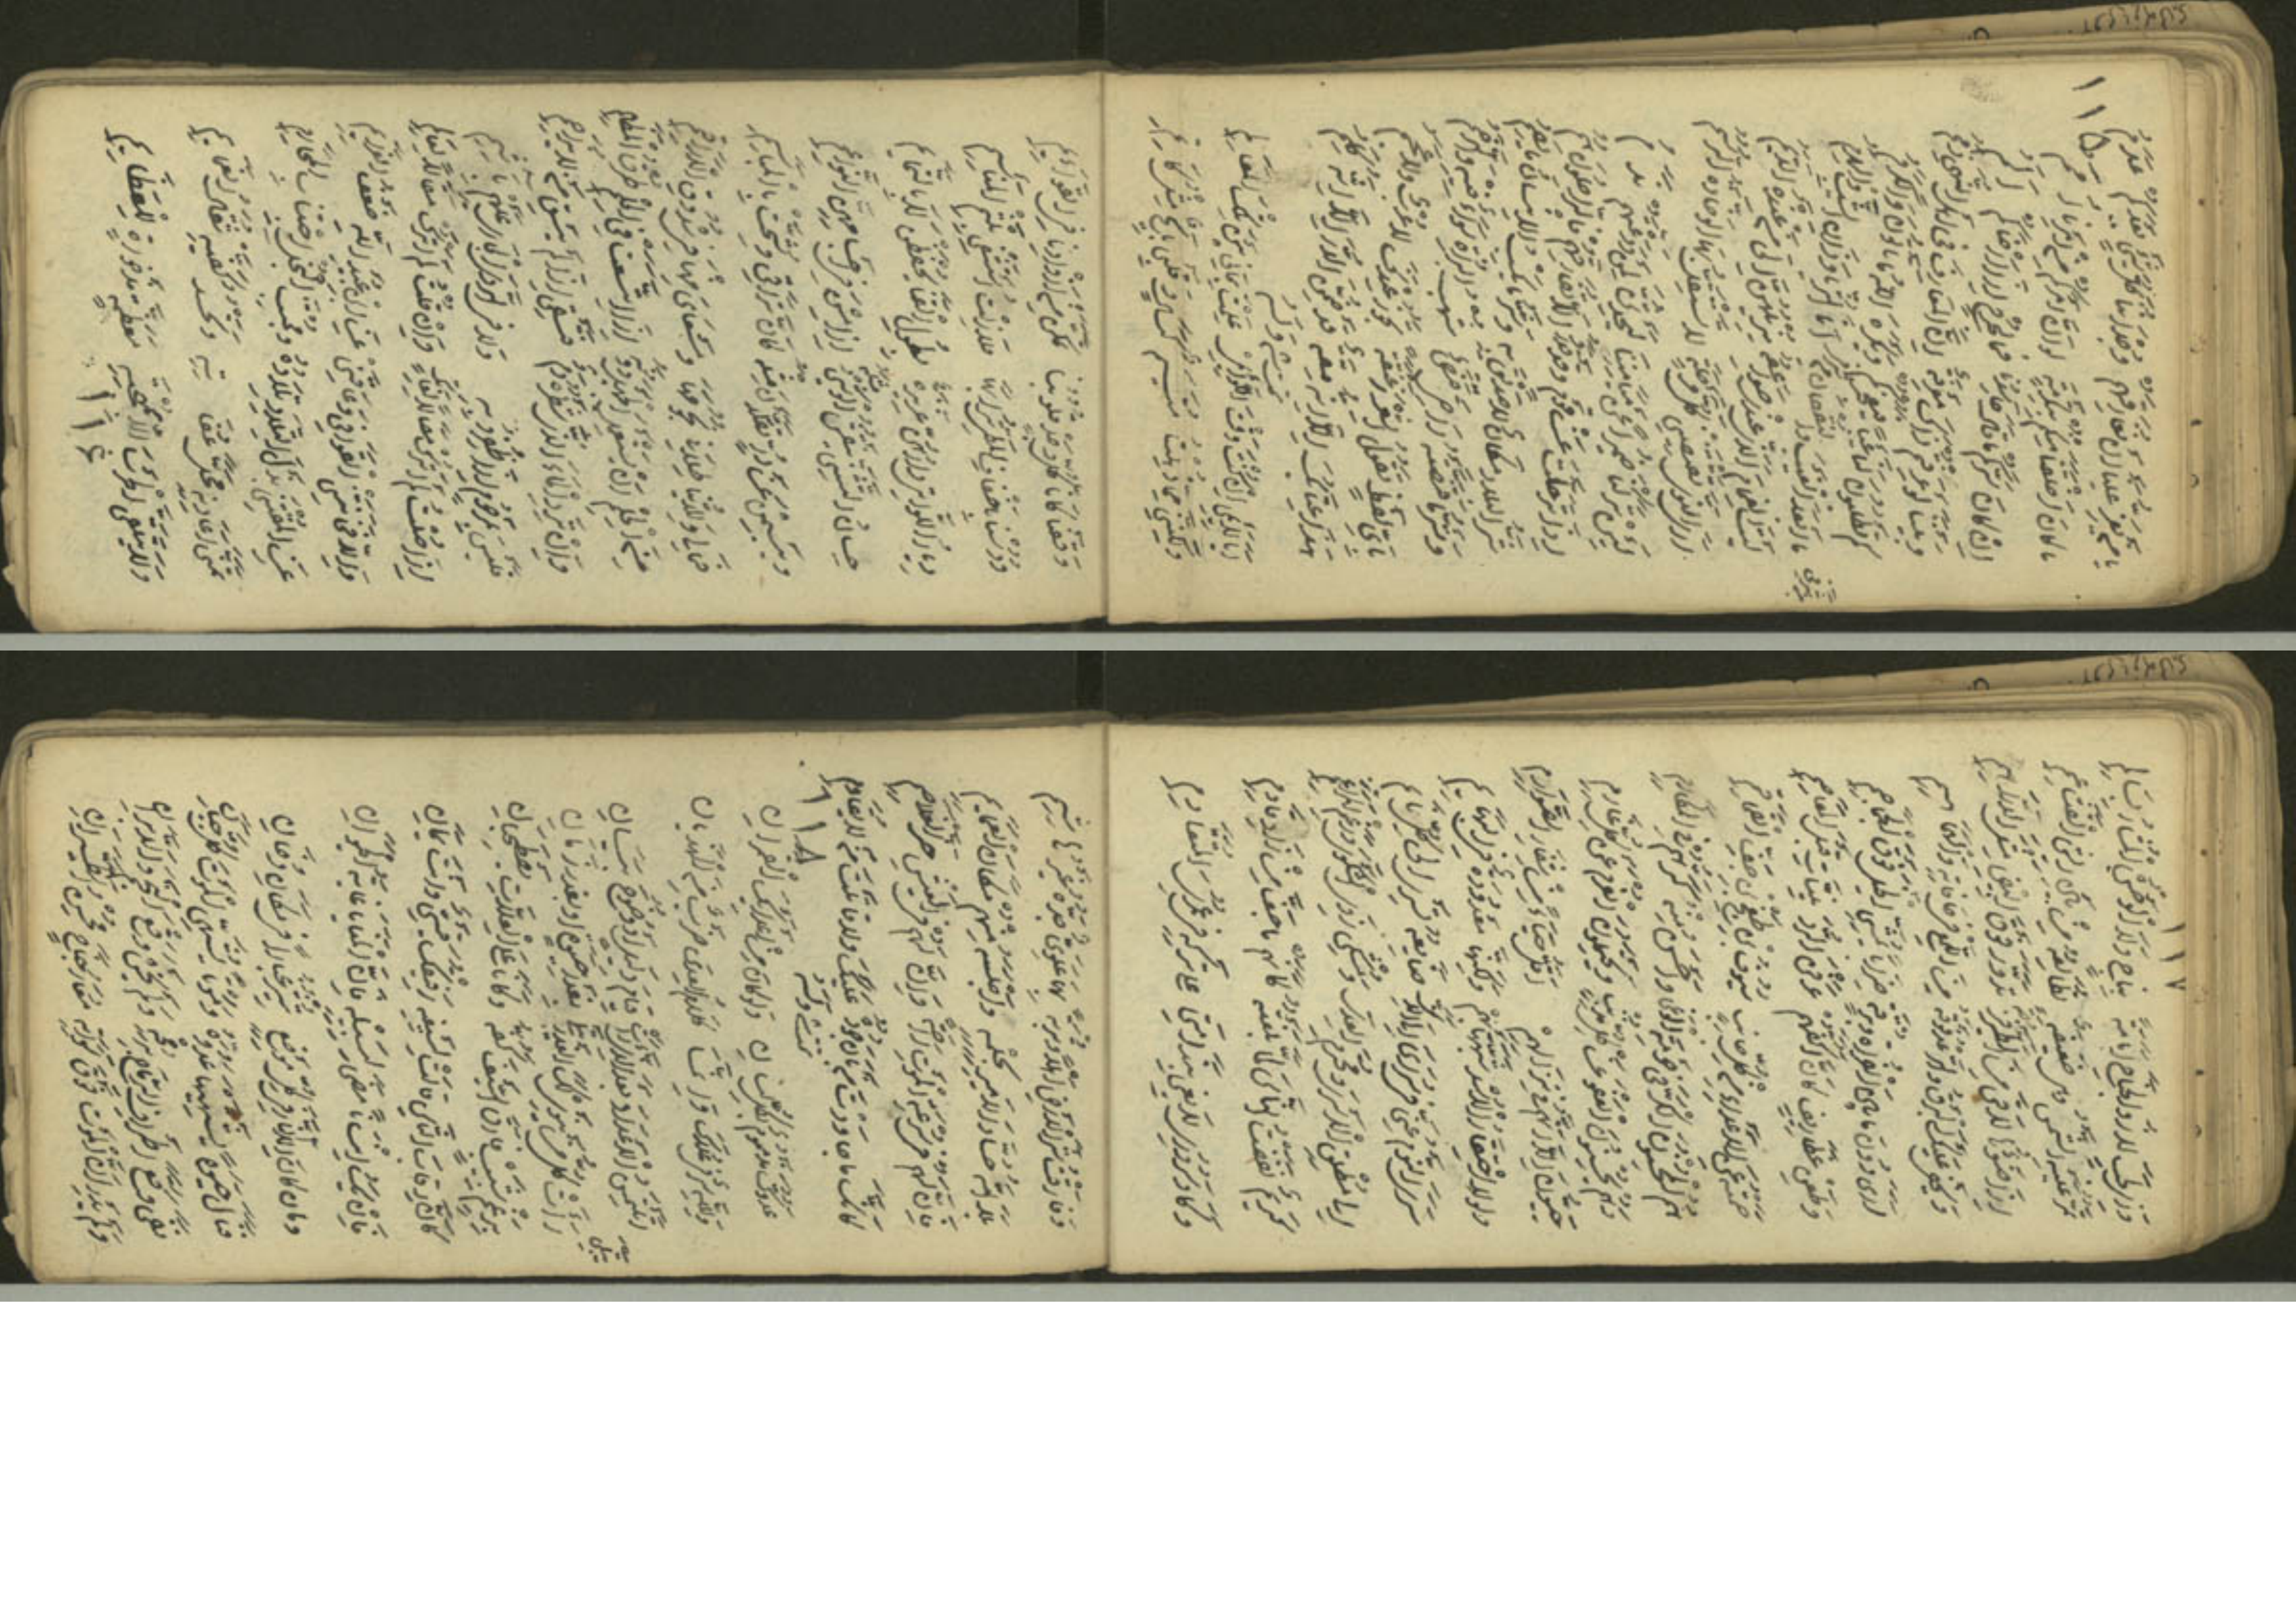 ١١٥
يا من يعز علينا ان نفارقهم وجداننا كل شيء بعدكم عدم
ما كان اخلقنا منكم بتكرمة لو ان امركم من امرنا امم
ان كان سركم ما قال حاسدنا فما لجرح اذا ارضاكم الم
وبيننا لو رعيتم ذاك معرفة ان المعارف في اهل النهى ذمم
كم تطلبون لنا عيبا فيعجزكم ويكره الله ما تاتون والكرم
ما ابعد العيب والنقصان عن شرفي انا الثريا وذان الشيب والهرم
ليت الغمام الذي عندي صواعقه يزيلهن الى من عنده الديم
ارى النوى تقتضيني كل مرحلة لا تستقل بها الوخادة الرسم
لئن تركن ضميرا عن ميامننا ليحدثن لمن ودعتهم ندم
اذا ترحلت عن قوم وقد قدروا ان لا تفارقهم فالراحلون هم
شر البلاد مكان لا صديق به وشر ما يكسب الانسان ما يصم
وشر ما قنصته راحتي قنص شهب البزاة سواء فيه والرخم
باي لفظ تقول الشعر زعنفة تجوز عندك لا عرب ولا عجم
هذا عتابك الا انه مقة قد ضمن الدر الا انه كلم
انا لائمي ان كنت وقت اللوائم علمت بما بي بين تلك المعالم
ولكنني مما شدهت متيم كسال وقلبي بائح مثل كاتم
وقفنا كانا كل وجد قلوبنا تمكن من اذوادنا في القوائم
ودسنا باخفاف المطي ترابها فلا زلت استشفي بلثم المناسم
ديار اللواتي دارهن عزيزة بطول القنا يحفظن لا بالتمائم
حسان التثني ينقش الوشي مثله اذا مسن في اجسامهن النواعم
ويبسمن عن در تقلدن مثله كان التراقي وشحت بالمباسم
فما لي وللدنيا طلابي نجومها ومسعاي منها في شدوق الاراقم
من الحلم ان تستعمل الجهل دونه اذا اتسعت في الحلم طرق المظالم
وان ترد الماء الذي شطره دم فتسقى اذا لم يسق من لم يزاحم
فليس بمرحوم اذا ظفروا به ولا في الردى الجاري عليهم باثم
اذا صلت لم اترك مصالا لفاتك وان قلت لم اترك مقالا لعالم
والا فخانتني القوافي وعاقني عن ابن عبيد الله ضعف العزائم
عن المقتني بذل التلاد تلاده ومجتنب البخل اجتناب المحارم
تمنى اعاديه محل عفاته وتحسد كفيه ثقال الغمائم
ولا يتلقى الحرب الا بمهجة معظمة مذخورة للعظائم
١١٦
١١٧
وذي لجب لا ذو الجناح امامه بناج ولا الوحش المثار بسالم
تمر عليه الشمس وهي ضعيفة تطالعه من بين ريش القشاعم
اذا ضوءها لاقى من الطير فرجة تدور فوق البيض مثل الدراهم
ويخفى عليك البرق والرعد فوقه من اللمع في حافاته والهماهم
ارى دون ما بين الفرات وبرقة ضرابا يمشي الخيل فوق الجماجم
وطعن غطاريف كان اكفهم عرفن الردينيات قبل المعاصم
حمته على الاعداء من كل جانب سيوف بني طغج بن جف القماقم
هم المحسنون الكر في حومة الوغى واحسن منه كرهم في المكارم
وهم يحسنون العفو عن كل مذنب ويحتملون الغرم عن كل غارم
حييون الا انهم في نزالهم اقل حياء من شفار الصوارم
ولولا احتقار الاسد شبهتها بهم ولكنها معدودة في البهائم
سرى النوم عني في سراي الى الذي صنائعه تسري الى كل نائم
الى مطلق الاسرى ومخترم العدى ومشكي ذوي الشكوى ورغم المراغم
كريم نفضت الناس لما بلغته كانهم ما جف من زاد قادم
وكاد سروري لا يفي بندامتي على تركه في عمري المتقادم
وفارقت شر الارض اهلا وتربة بها علوي جده غير هاشم
بلى الله حساد الامير بحلمه واجلسه منهم مكان العمائم
فان لهم في سرعة الموت راحة وان لهم في العيش حز الغلاصم
كانك ما جاودت من بان جوده عليك ولا قاتلت من لم تقاوم
١١٨
عدوك مذموم بكل لسان ولو كان من اعدائك القمران
ولله سر في علاك وانما كلام العدى ضرب من الهذيان
اتلتمس الاعداء بعد الذي رات قيام دليل او وضوح بيان
رات كل من ينوي لك الغدر يبتلى بغدر حياة او بغدر زمان
برغم شبيب فارق السيف كفه وكانا على العلات يصطحبان
كان رقاب الناس قالت لسيفه رفيقك قيسي وانت يمان
فان يك انسانا مضى لسبيله فان المنايا غاية الحيوان
وما كان الا النار في كل موضع تثير غبارا في مكان دخان
فنال حياة يشتهيها عدوه وموتا يشهي الموت كل جبان
نفى وقع اطراف الرماح برمحه ولم يخش وقع النجم والدبران
ولم يدر ان الموت فوق شواته معار جناح محسن الطيران